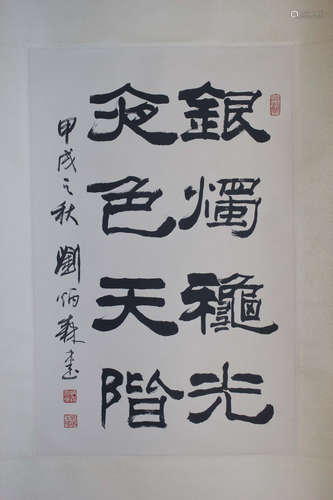 銀燭穐光
夜色天階
甲戌之秋 劉炳森書